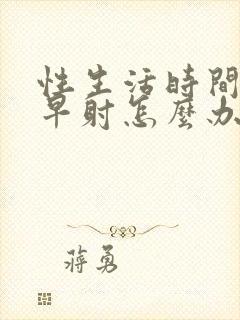 性生活時間
早射怎麼办
蔣勇